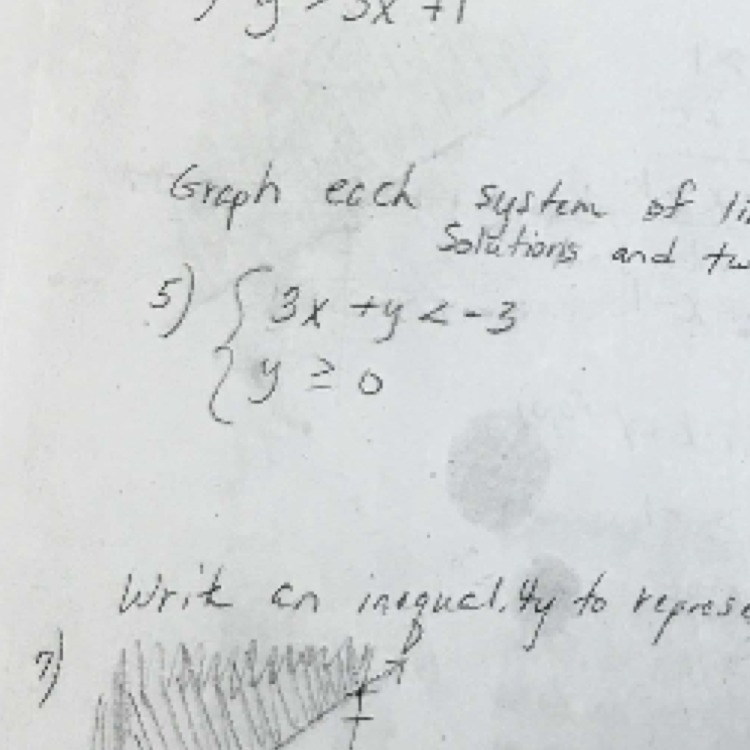 y > 3x + 1
Graph each system of
Solutions and
5) { 3x + y < -3
y ≥ 0
Write an inequality to
7)